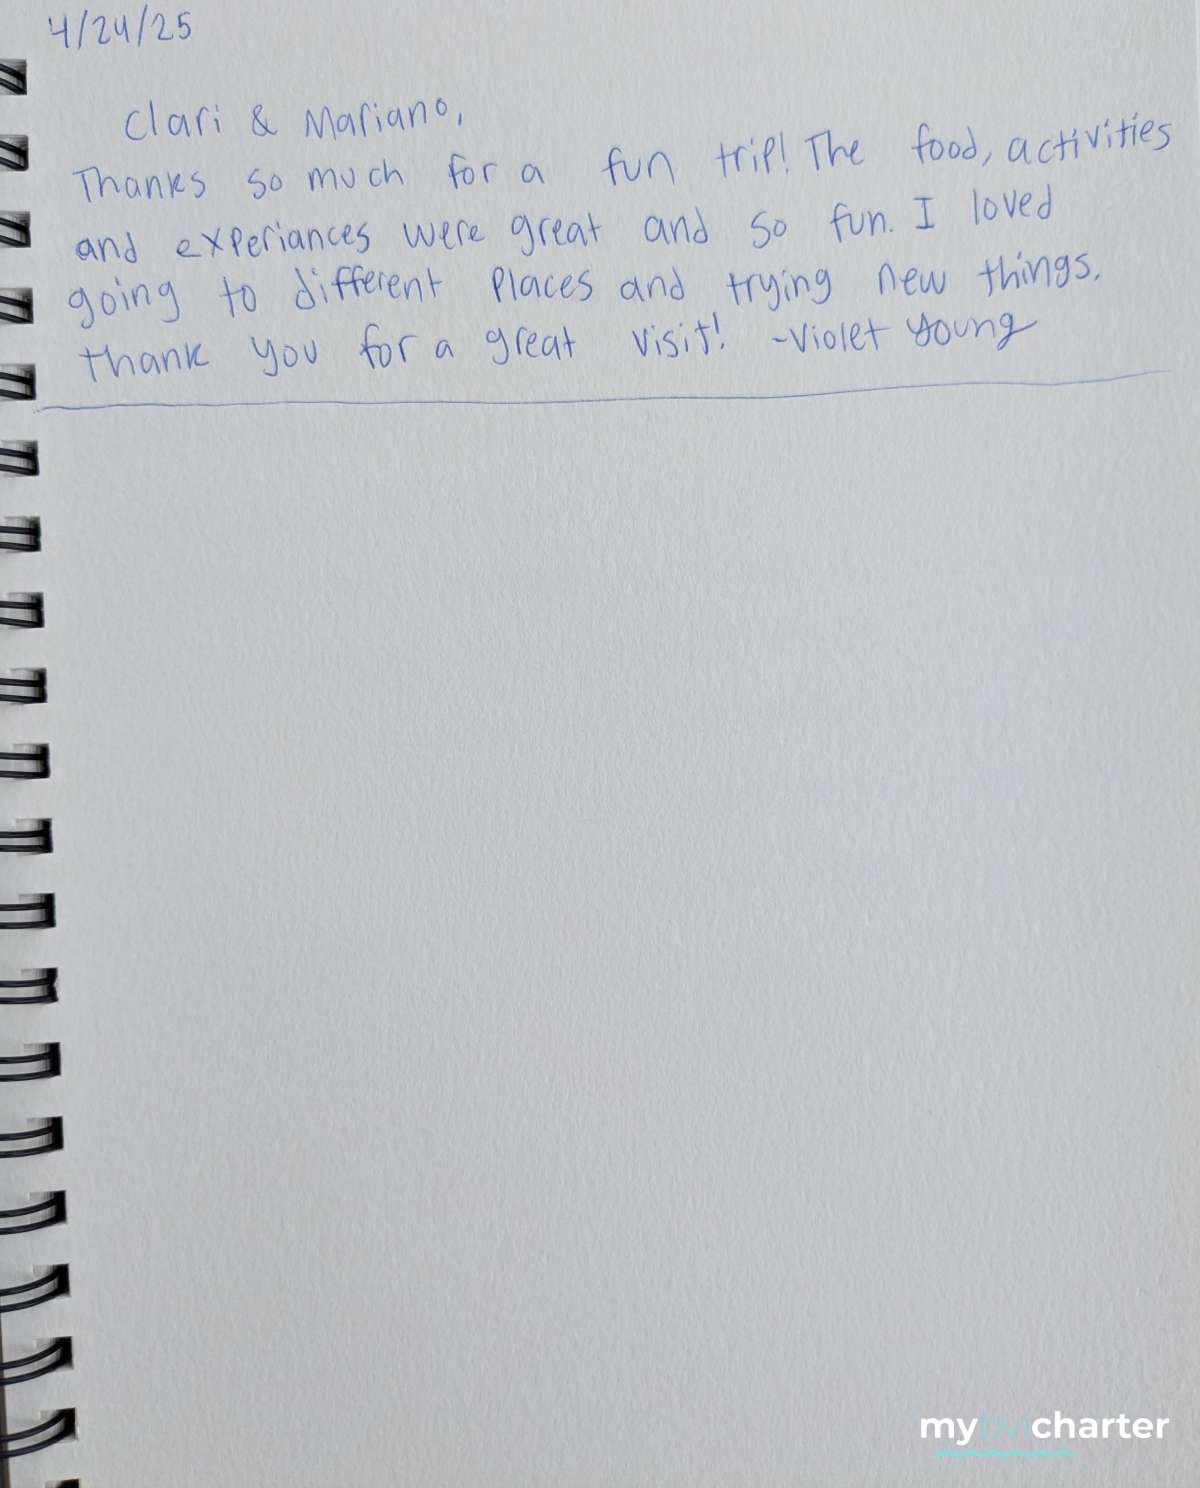 4/24/25
Clari & Mariano,
Thanks so much for a fun trip! The food, activities
and experiances were great and so fun. I loved
going to different places and trying new things.
thank you for a great visit! ~Violet young
mybvicharter